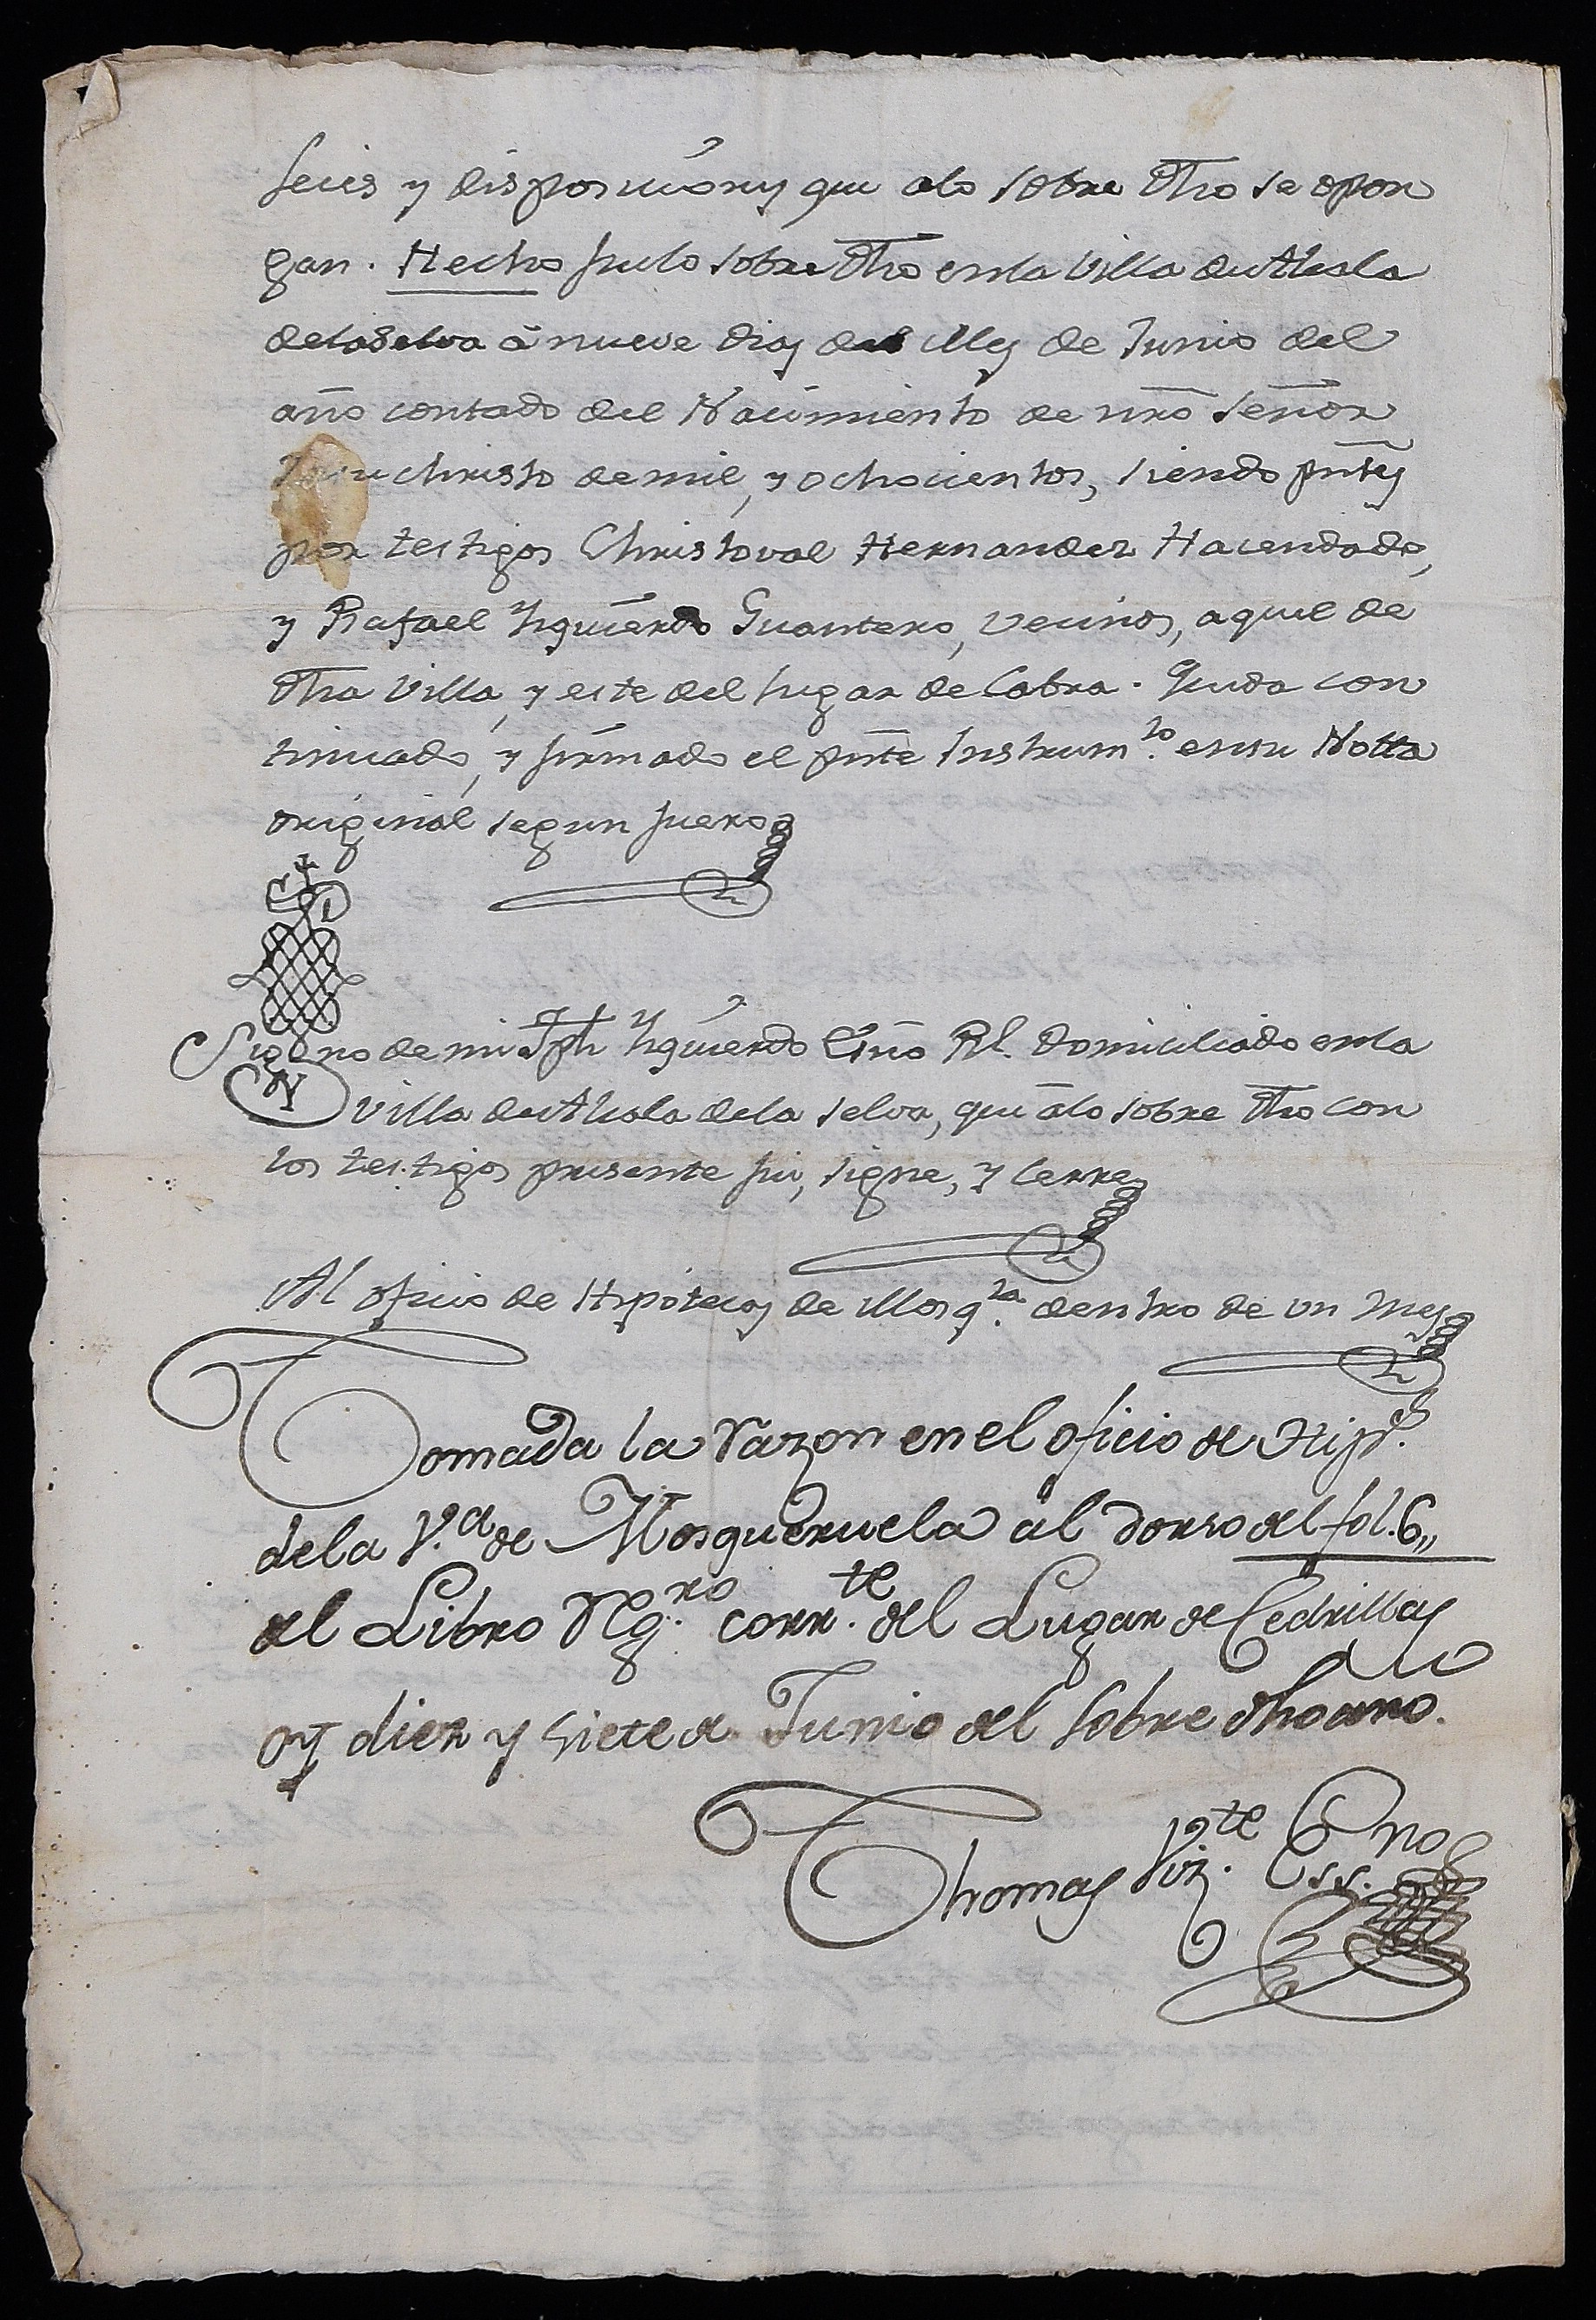 leies y disposiciones que alo sobre dho se opon
gan. Hecho fue lo sobre dho enla Villa de Alcala
dela Selva á nueve dias del Mes de Junio del
año contado del Nacimiento de nro Señor
Jesuchristo de mil, y ochocientos, siendo pntes
por testigos Christoval Hernandez Hacendado,
y Rafael Yzquierdo Guantero, vecinos, aquel de
dha Villa, y este del Lugar de Cabra. Queda con
tinuado, y firmado el pnte Instrum.to ensu Notta
original segun fuero
Sig no de mi Jph Yzquierdo Esno Rl. Domiciliado enla
villa de Alcala dela Selva, que álo sobre dho con
los testigos presente fui, signe, y cerre
Al oficio de Hipotecas de Mosq.la dentro de un mes
Tomada la razon en el oficio de Hip.s
dela V.a de Mosqueruela al dorso del fol. 6,,
del Libro Rg.ro corr.te del Lugar de Cedrillas
oy diez y siete de Junio del sobre dho año.
Thomas Viz.te Essno